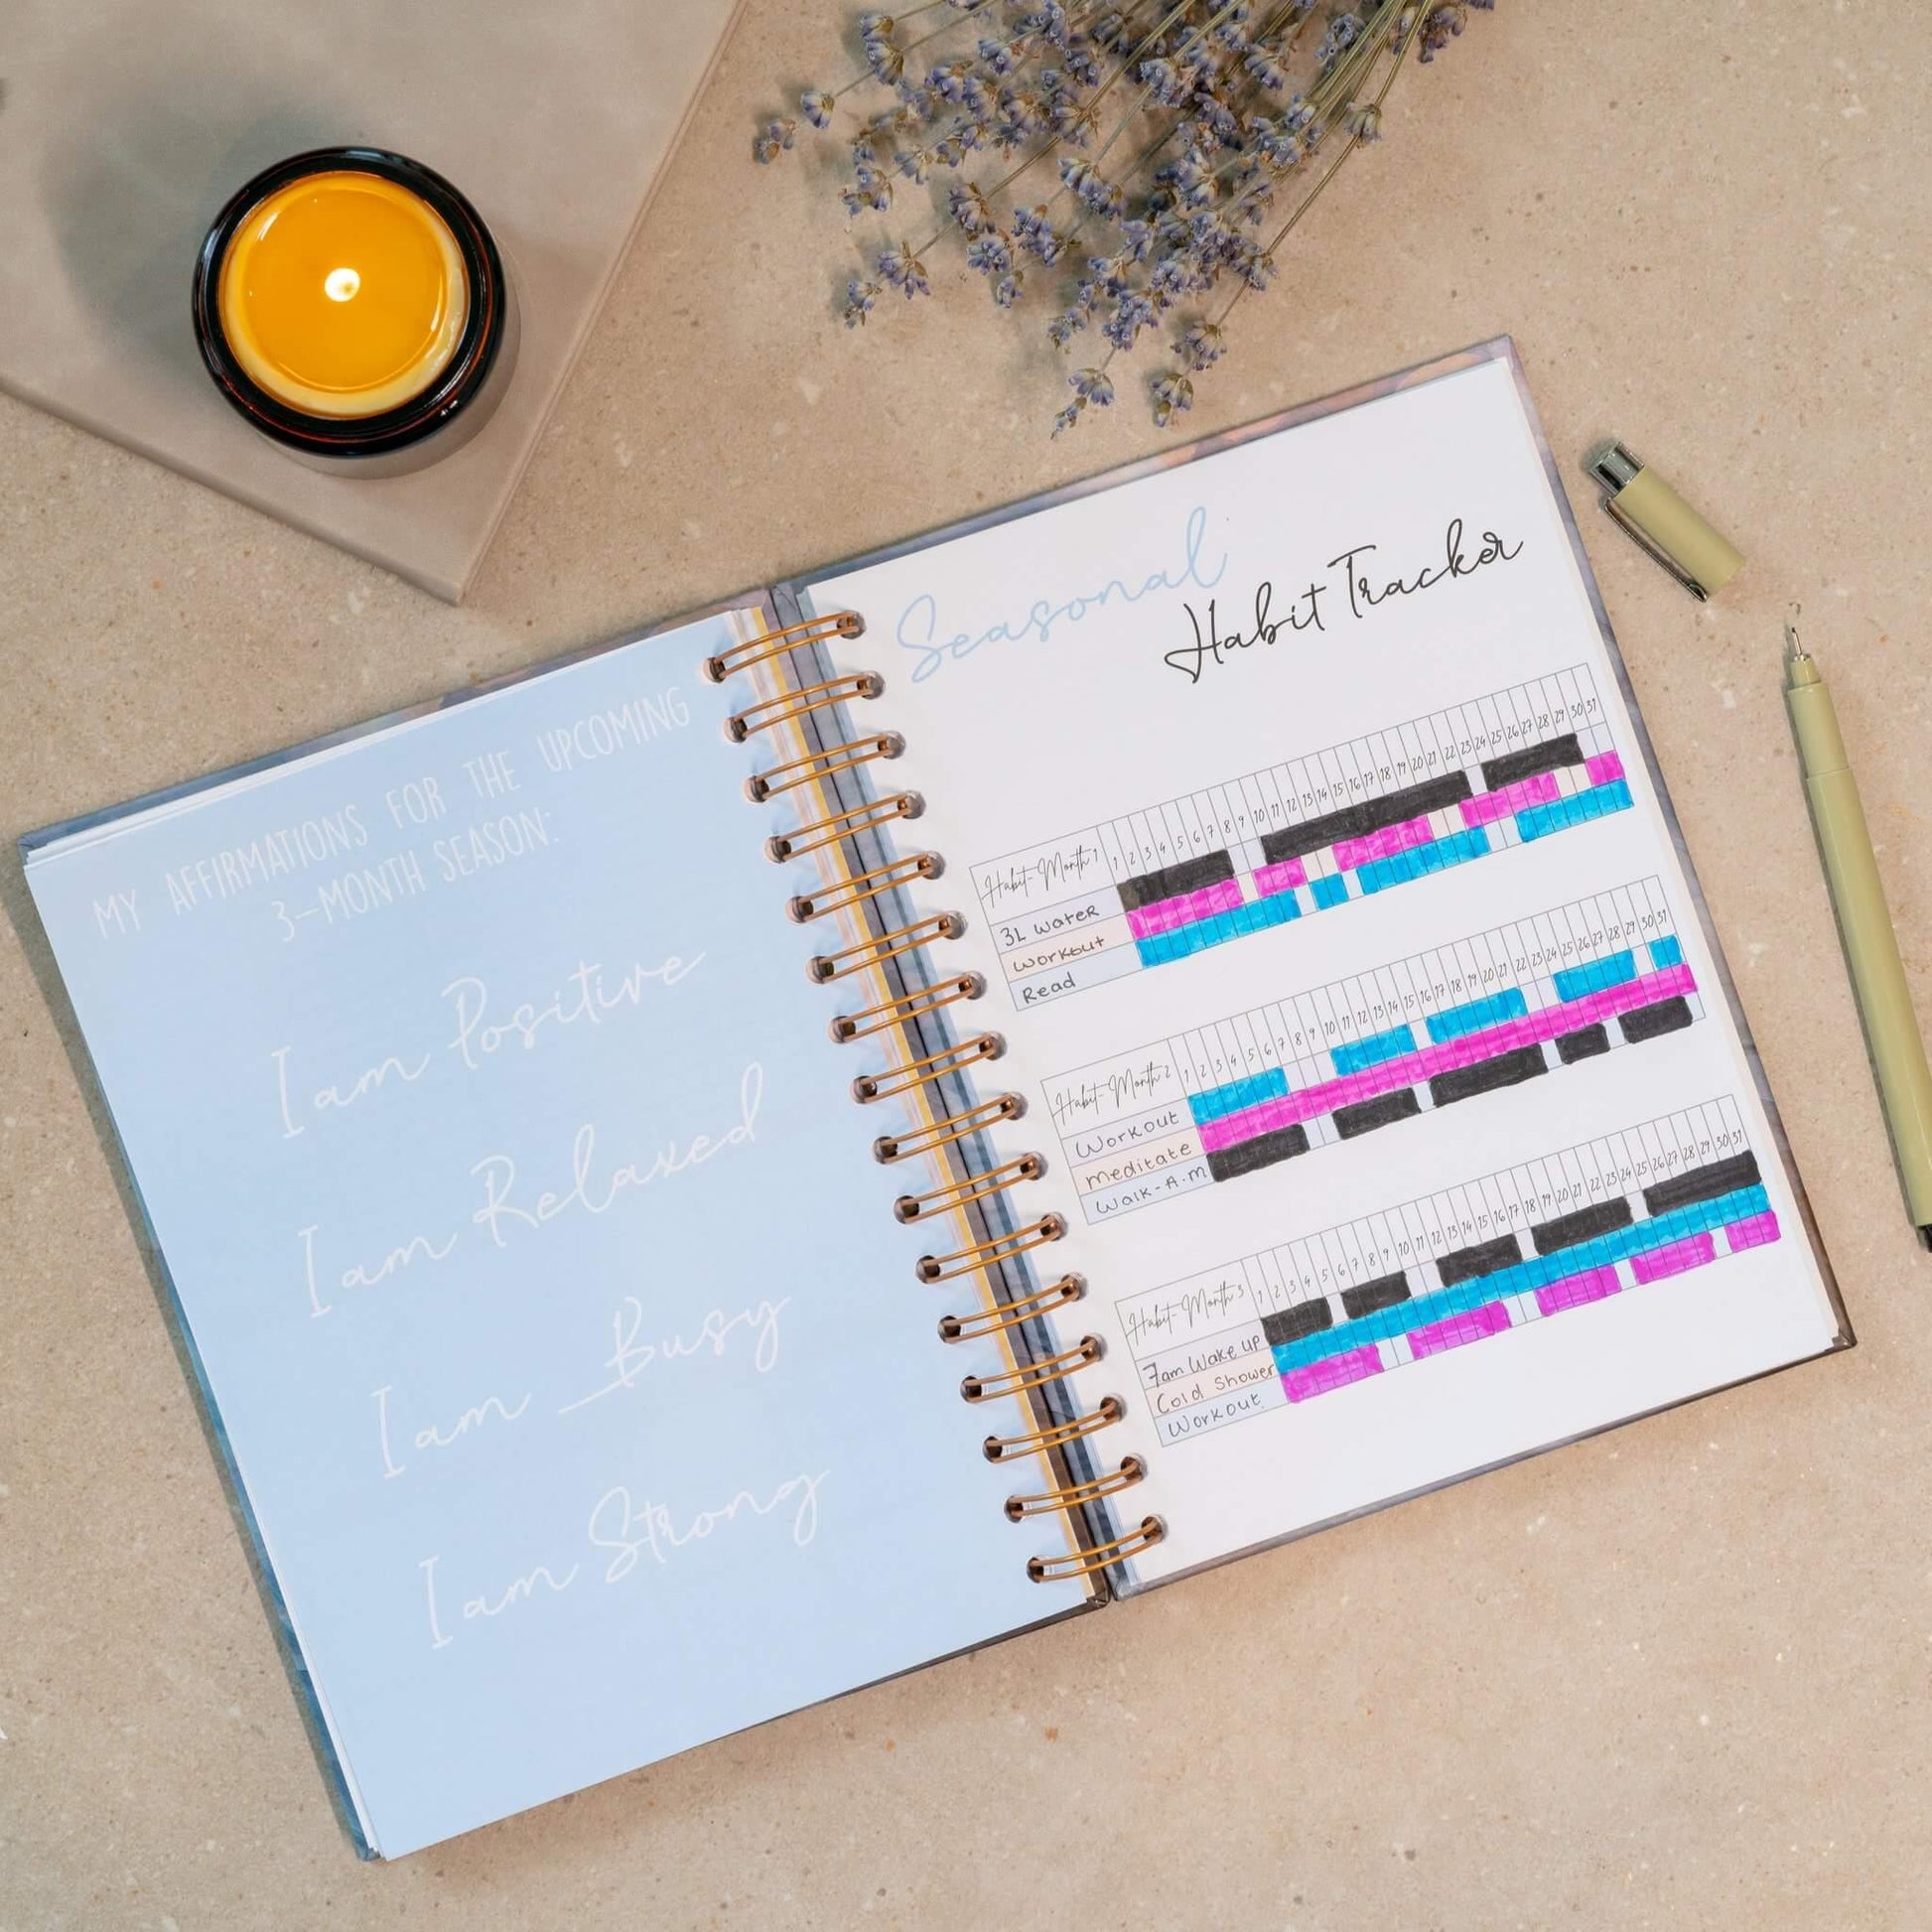 MY AFFIRMATIONS FOR THE UPCOMING
3-MONTH SEASON:
I am Positive
I am Relaxed
I am Busy
I am Strong
Seasonal
Habit Tracker
Habit-Month 1 1 2 3 4 5 6 7 8 9 10 11 12 13 14 15 16 17 18 19 20 21 22 23 24 25 26 27 28 29 30 31
3L Water
Workout
Read
Habit-Month 2 1 2 3 4 5 6 7 8 9 10 11 12 13 14 15 16 17 18 19 20 21 22 23 24 25 26 27 28 29 30 31
Workout
meditate
Walk-A.m
Habit-Month 3 1 2 3 4 5 6 7 8 9 10 11 12 13 14 15 16 17 18 19 20 21 22 23 24 25 26 27 28 29 30 31
7am Wake up
Cold Shower
Workout.